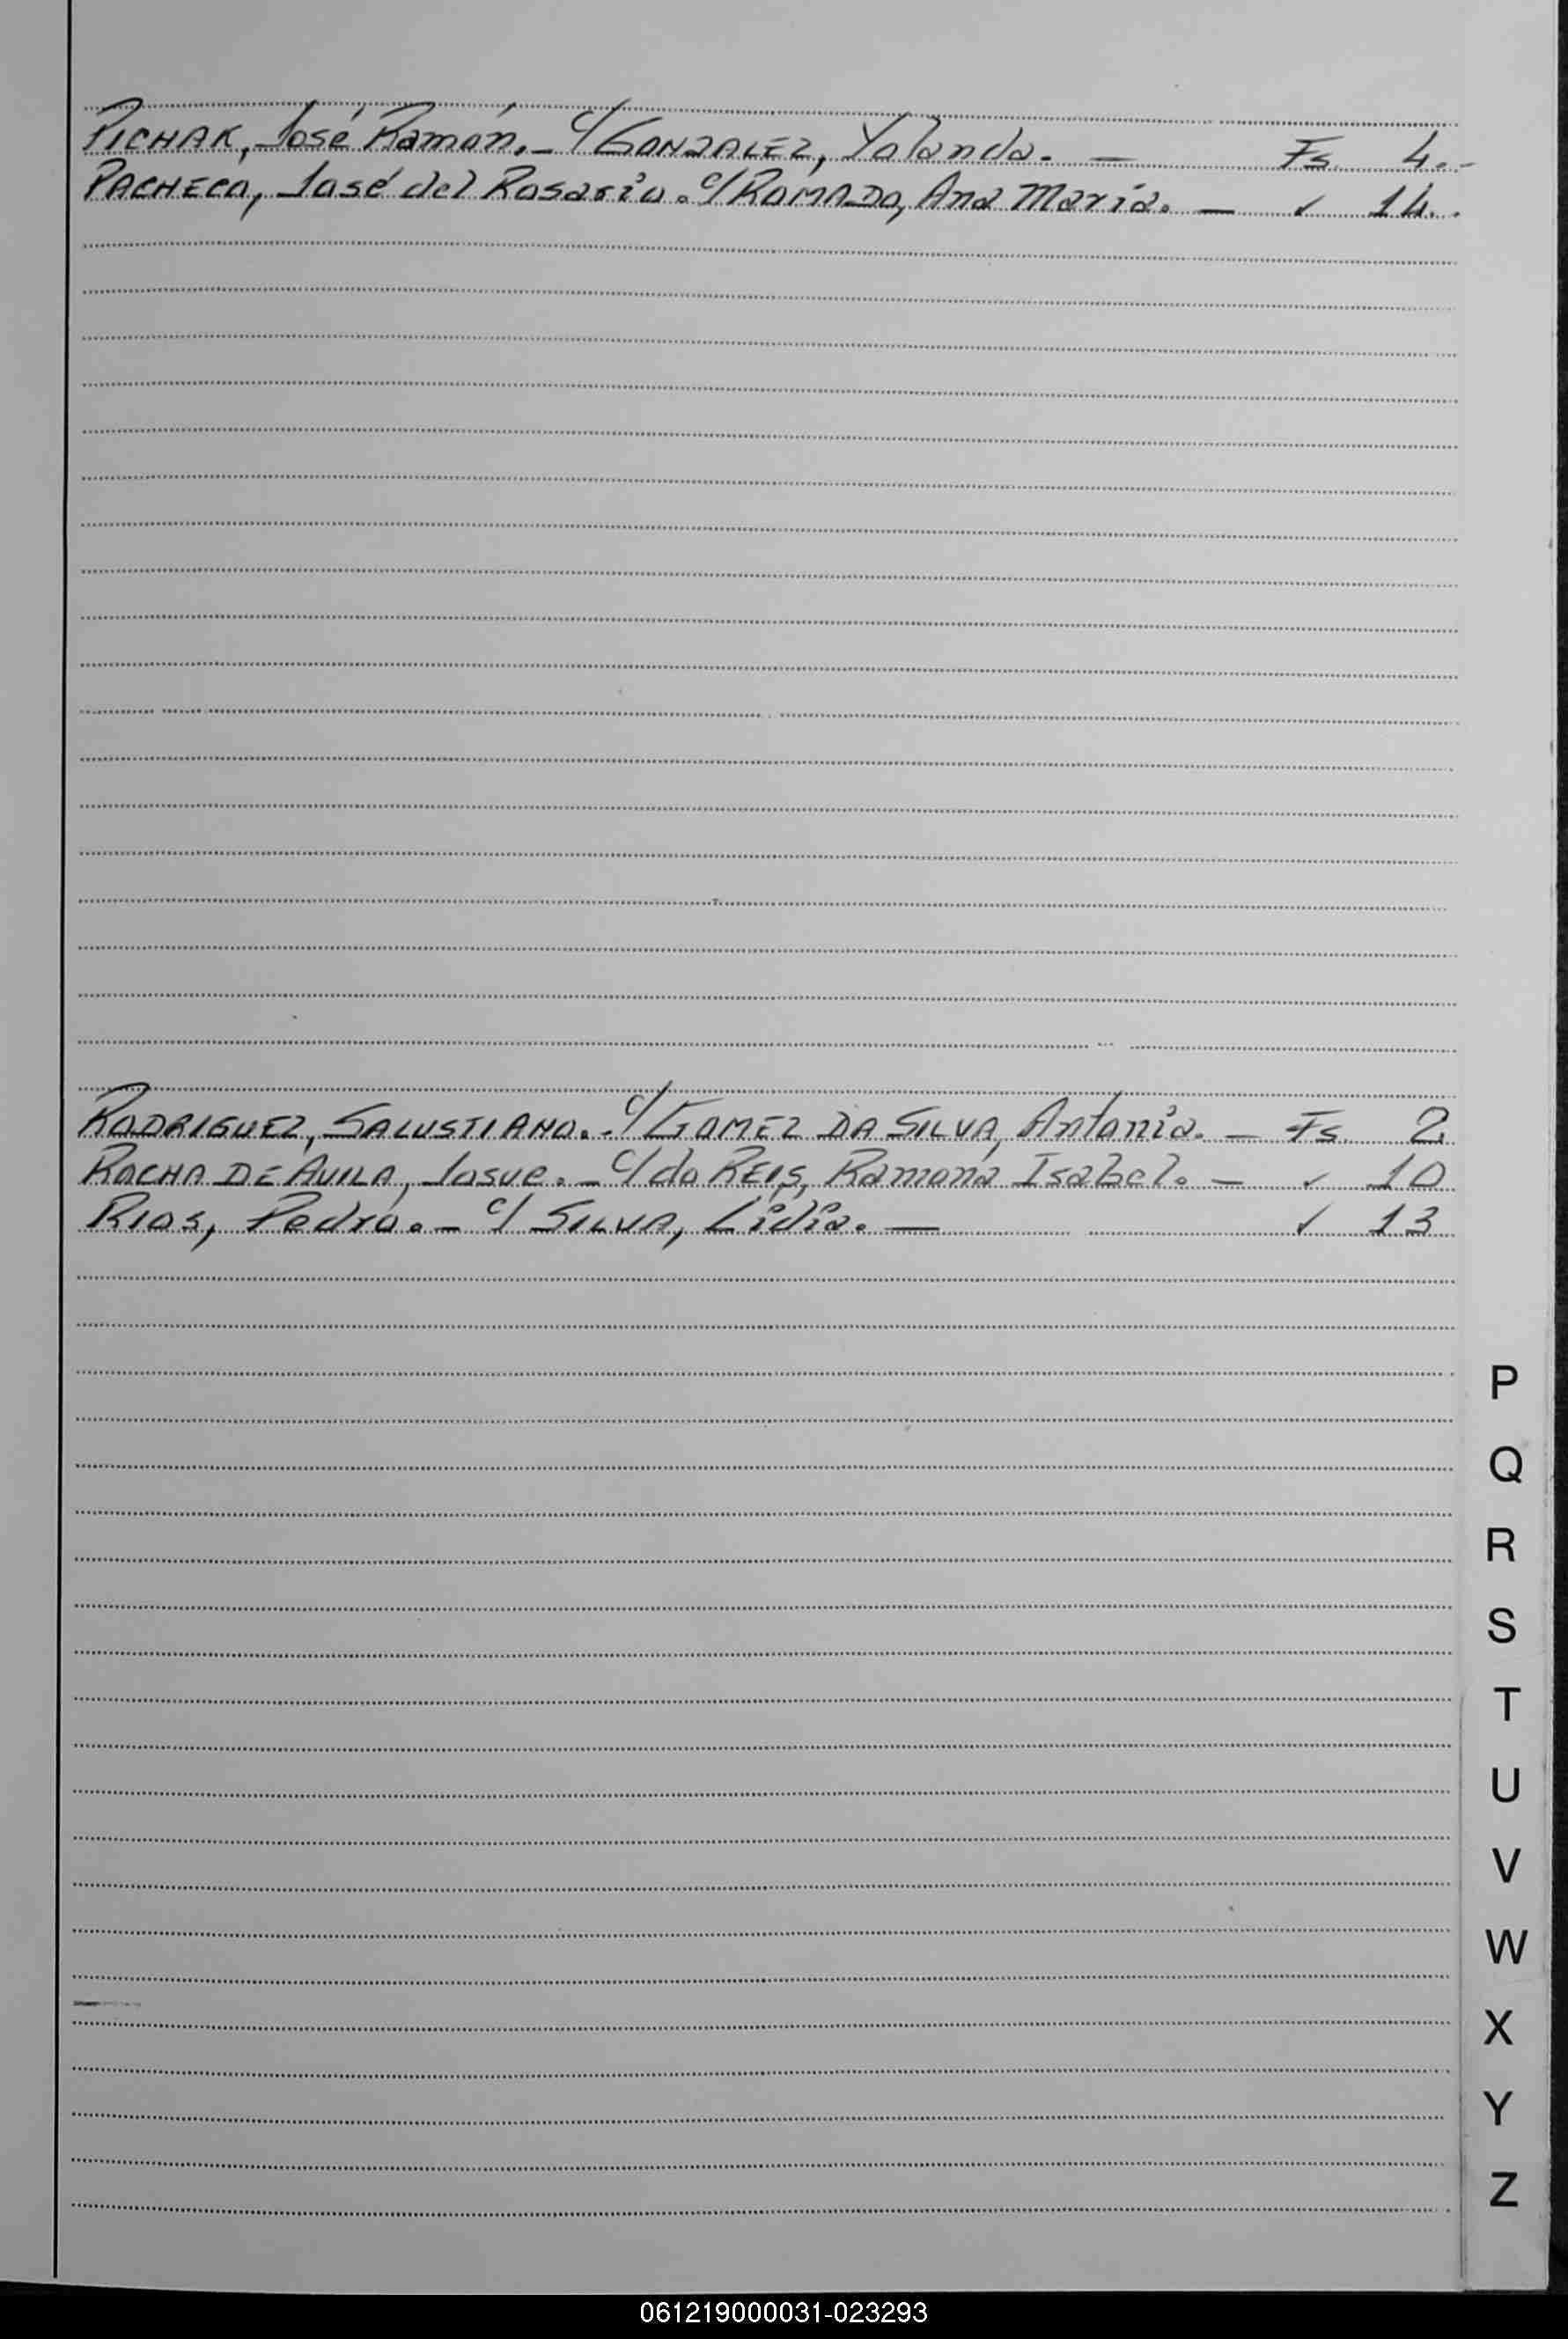 PICHAK, José Ramón. - c/ GONZALEZ, Yolanda. — Fs. 4.-
PACHECO, José del Rosario. c/ ROMADO, Ana María. — ✓ 14.
RODRIGUEZ, SALUSTIANO. - c/ GOMEZ DA SILVA, Antonia. — Fs. 2
ROCHA DE ÁVILA, Josue. - c/ do REIS, Ramona Isabel. — ✓ 10
RIOS, Pedro. - c/ SILVA, Lidia. — ✓ 13
P
Q
R
S
T
U
V
W
X
Y
Z
061219000031-023293